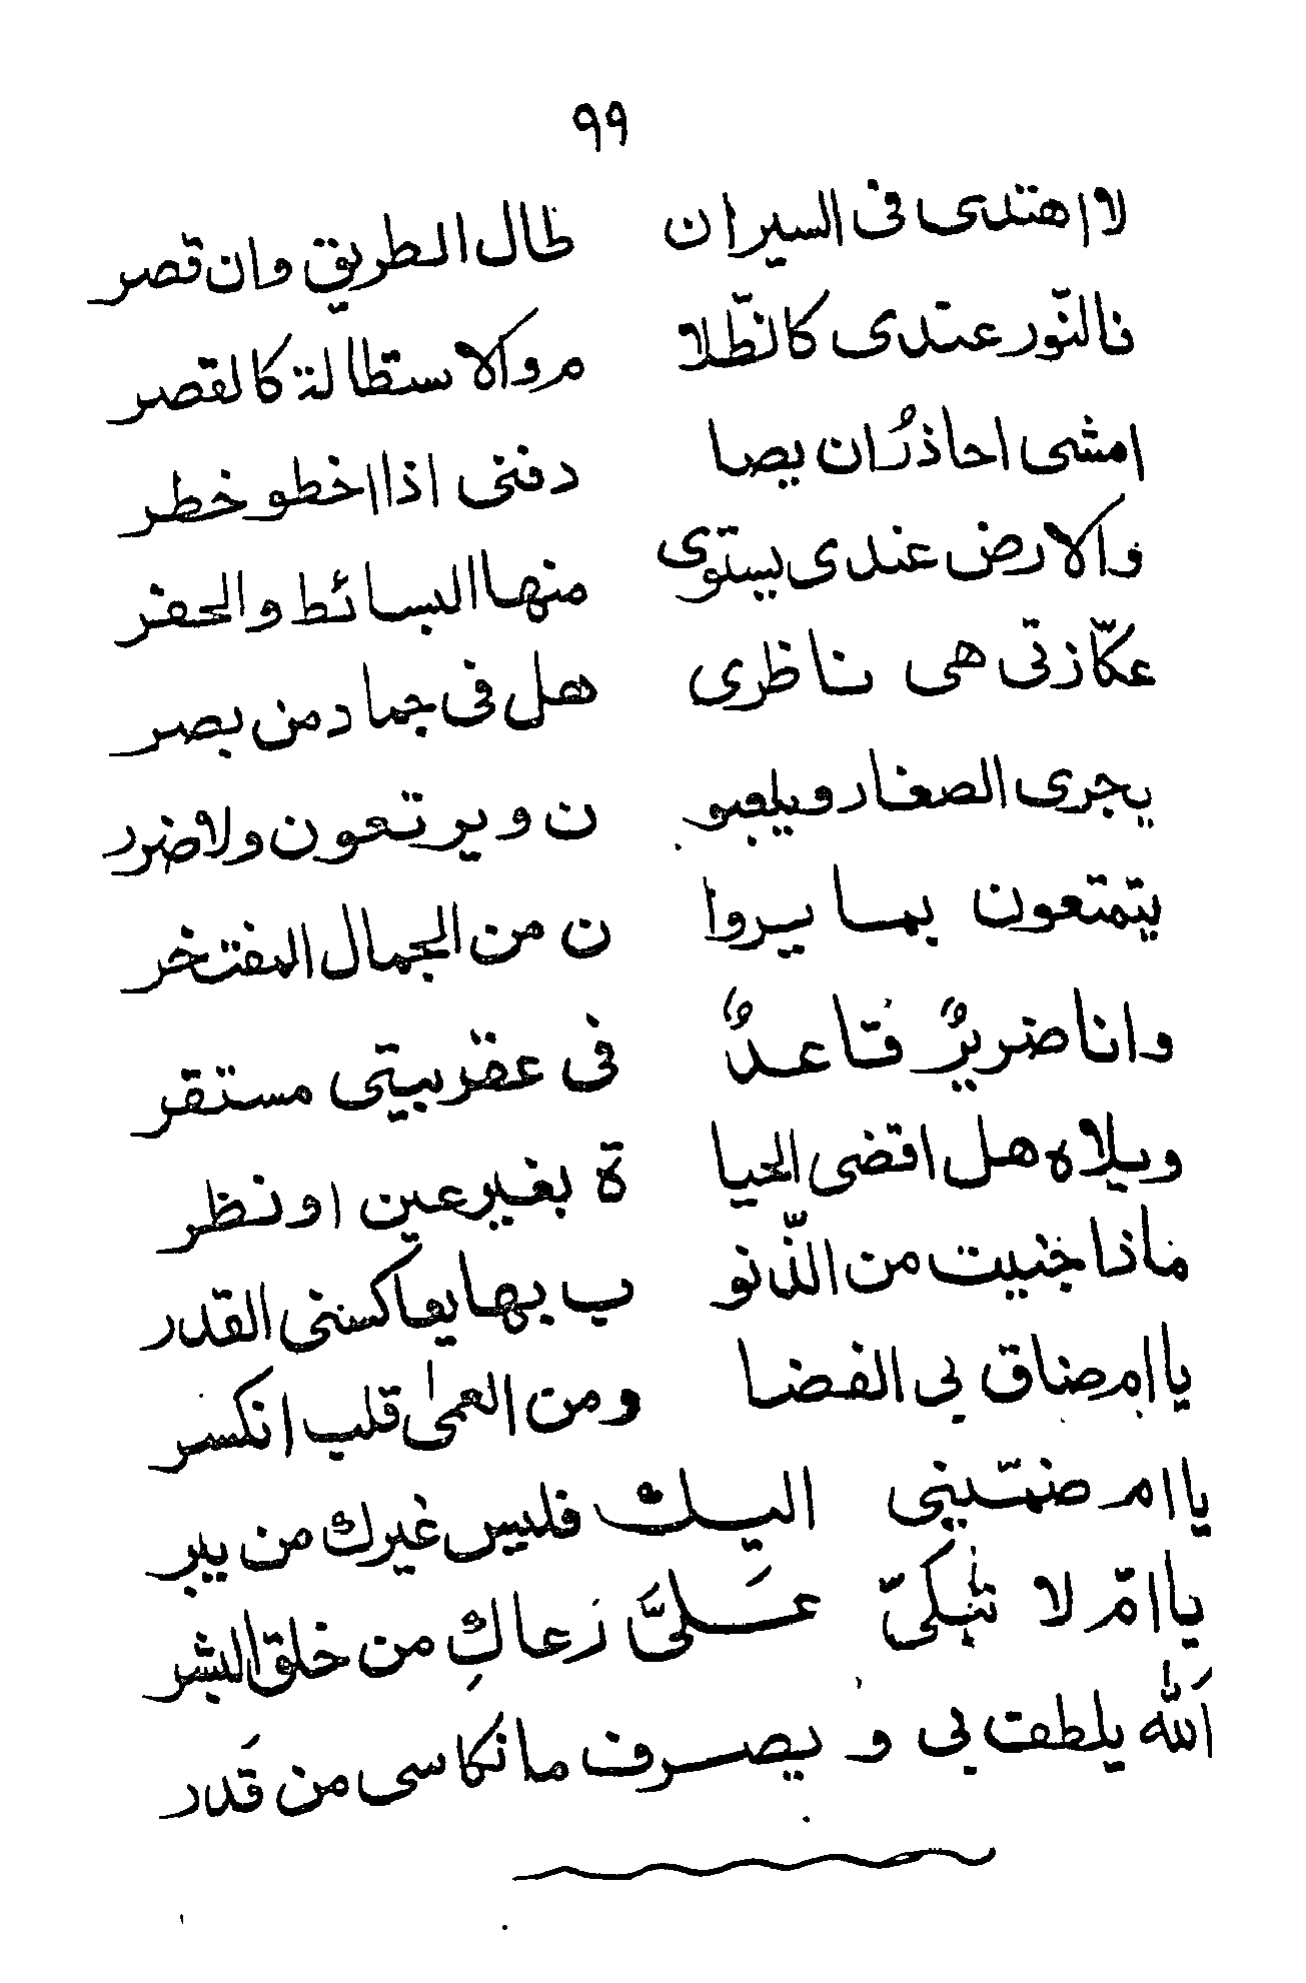 ٩٩
لا اهتدى فى السير ان طال الطريق وان قصر
فالنّور عندى كالظّلا م والاستطالة كالقصر
امشى احاذرُ ان يصا دفنى اذا اخطو خطر
والارض عندى يستوى منها البسائط والحفر
عكّازتى هى ناظرى هل فى جماد من بصر
يجرى الصغار ويلعبو ن ويرتعون ولا ضرر
يتمتعون بما يروا ن من الجمال المفتخر
وانا ضريرٌ قاعدٌ فى عقر بيتى مستقر
ويلاه هل اقضى الحيا ة بغير عين او نظر
ماذا جنيت من الذّنو ب بها يعاكسنى القدر
يا ام ضاق بى الفضا ومن العمى قلبى انكسر
يا ام ضمّينى اليك فليس غيرك من يبر
يا امّ لا تبكىّ عَلىَّ رعاكِ من خلق البشر
اَلله يلطف بى و يصرف ما نكاسى من قَدر